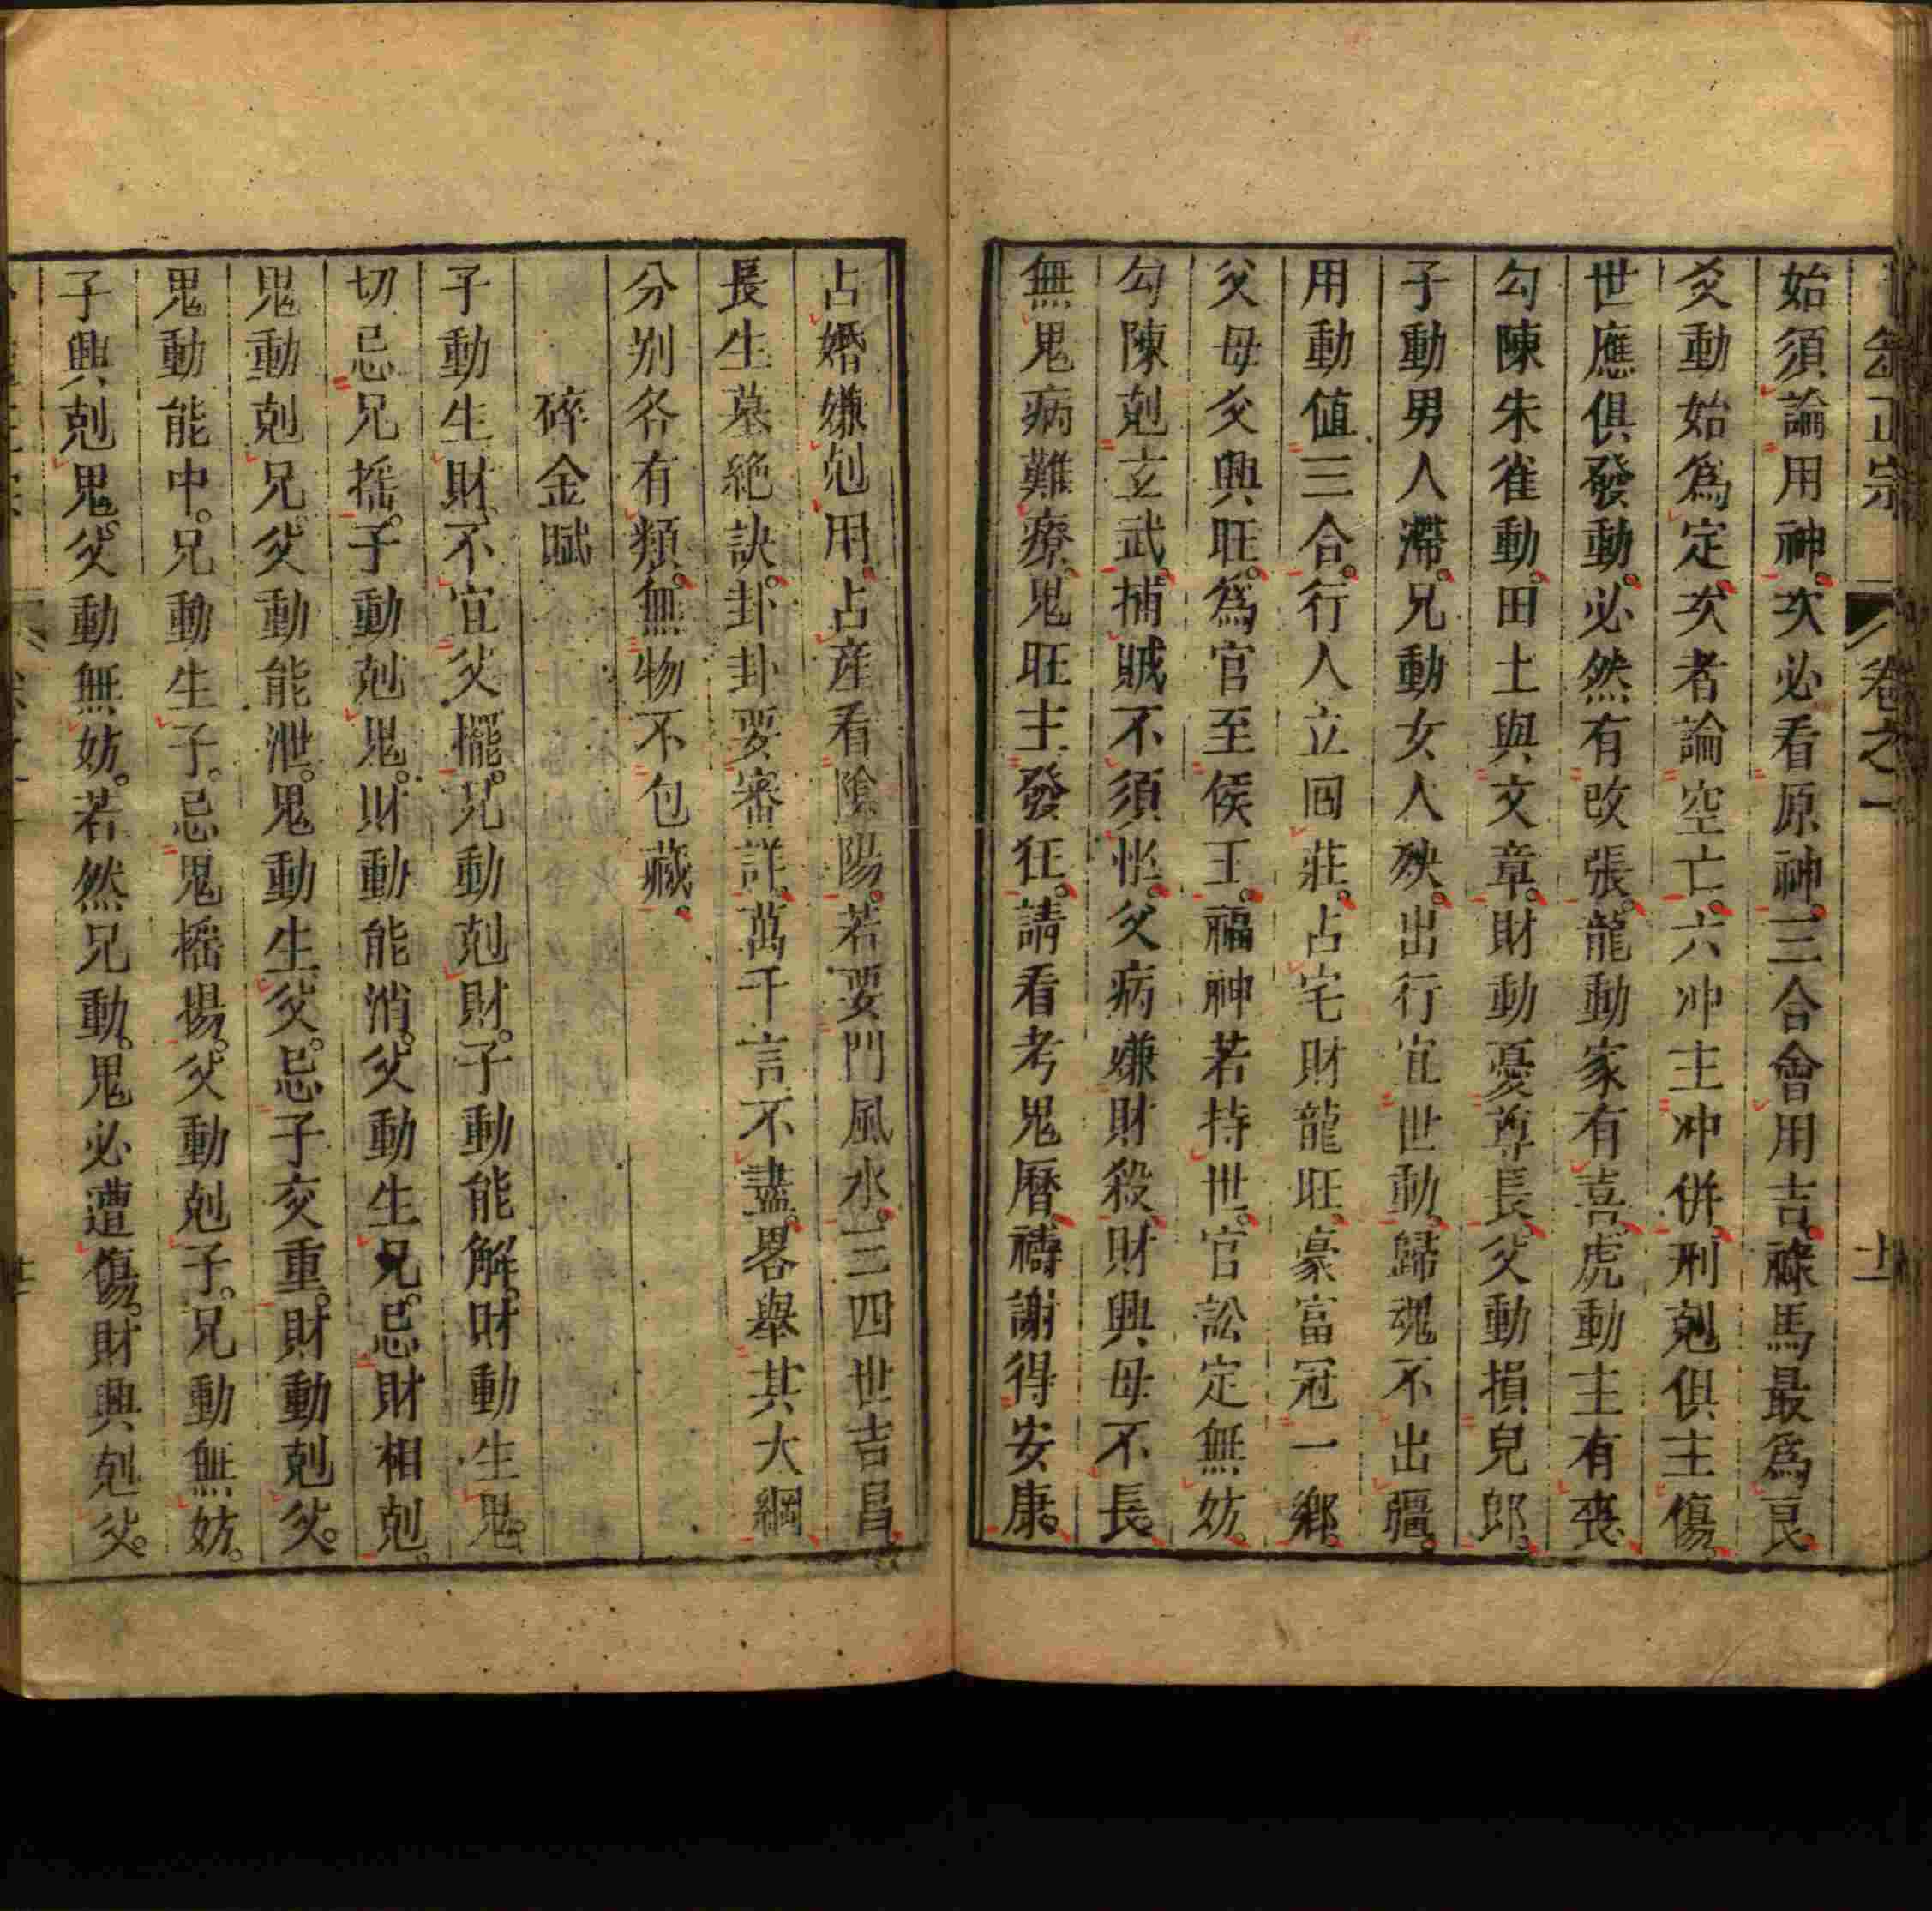 卜筮正宗 卷之一 十一
始須論用神。次必看原神。三合會用吉。祿馬最爲良。
爻動始爲定。次者論空亡。六冲主冲併。刑剋俱主傷。
世應俱發動。必然有改張。龍動家有喜。虎動主有喪。
勾陳朱雀動。田土與文章。財動憂尊長。父動損兒郎。
子動男人滯。兄動女人殃。出行宜世動。歸魂不出疆。
用動值三合。行人立囘莊。占宅財龍旺。豪富冠一鄉。
父母爻興旺。爲官至侯王。福神若持世。官訟定無妨。
勾陳剋玄武。捕賊不須忙。父病嫌財殺。財興母不長。
無鬼病難療。鬼旺主發狂。請看考鬼曆。禱謝得安康。
占婚嫌剋用。占産看陰陽。若要問風水。三四世吉昌。
長生墓絶訣。卦卦要審詳。萬千言不盡。畧舉其大綱。
分別各有類。無物不包藏。
碎金賦
子動生財。不宜父擺。兄動剋財。子動能解。財動生鬼。
切忌兄摇。子動剋鬼。財動能消。父動生兄。忌財相剋。
鬼動剋兄。父動能泄。鬼動生父。忌子交重。財動剋父。
鬼動能中。兄動生子。忌鬼摇揚。父動剋子。兄動無妨。
子興剋鬼。父動無妨。若然兄動。鬼必遭傷。財興剋父。